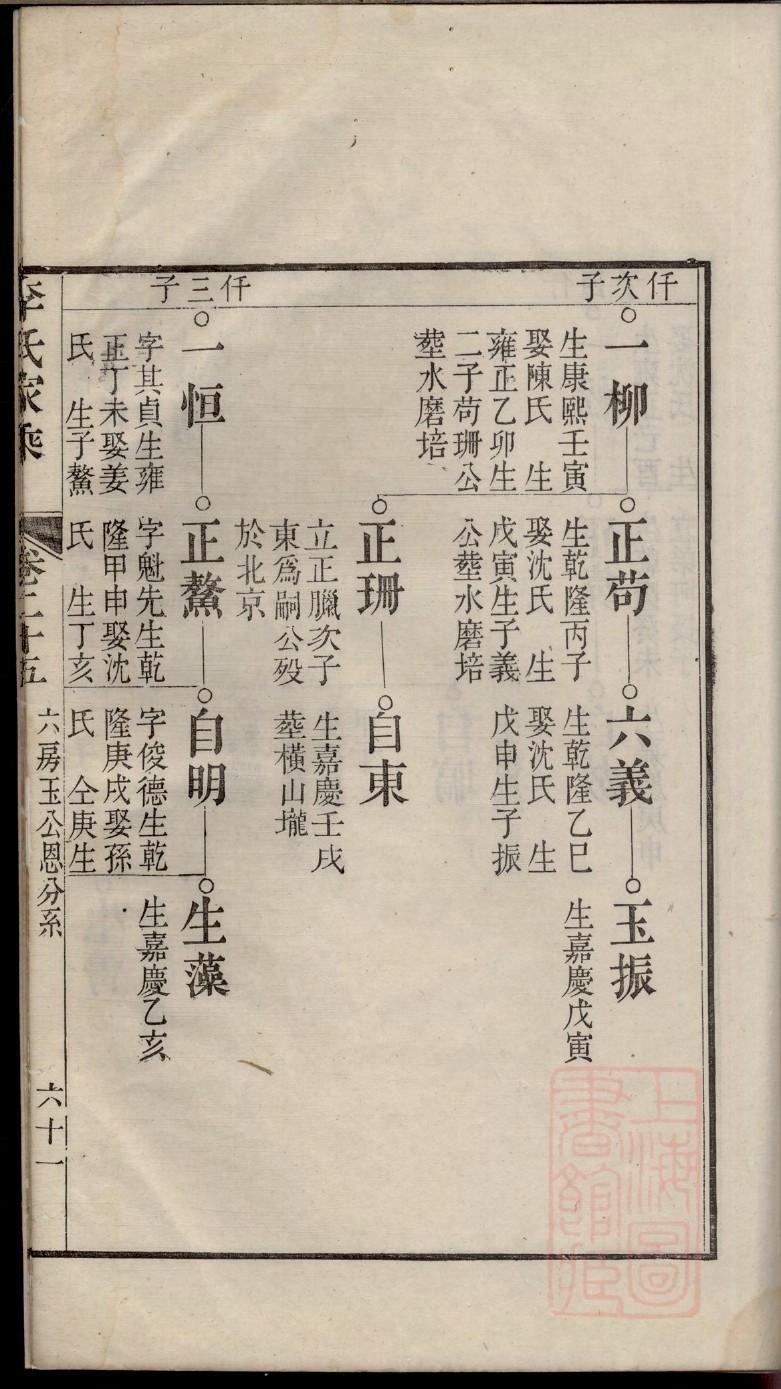 仟次子
一柳
生康熙壬寅
娶陳氏　生
雍正乙卯生
二子苟珊公
塟水磨培
正苟
生乾隆丙子
娶沈氏　生
戊寅生子義
公塟水磨培
六義
生乾隆乙巳
娶沈氏　生
戊申生子振
玉振
生嘉慶戊寅
正珊
立正臘次子
東爲嗣公殁
於北京
自東
生嘉慶壬戌
塟橫山壠
仟三子
一恒
字其貞生雍
正丁未娶姜
氏　生子鰲
正鰲
字魁先生乾
隆甲申娶沈
氏　生丁亥
自明
字俊德生乾
隆庚戌娶孫
氏　仝庚生
生藻
生嘉慶乙亥
李氏家乘
卷二十五
六房玉公恩分系
六十一
上海圖
書館藏